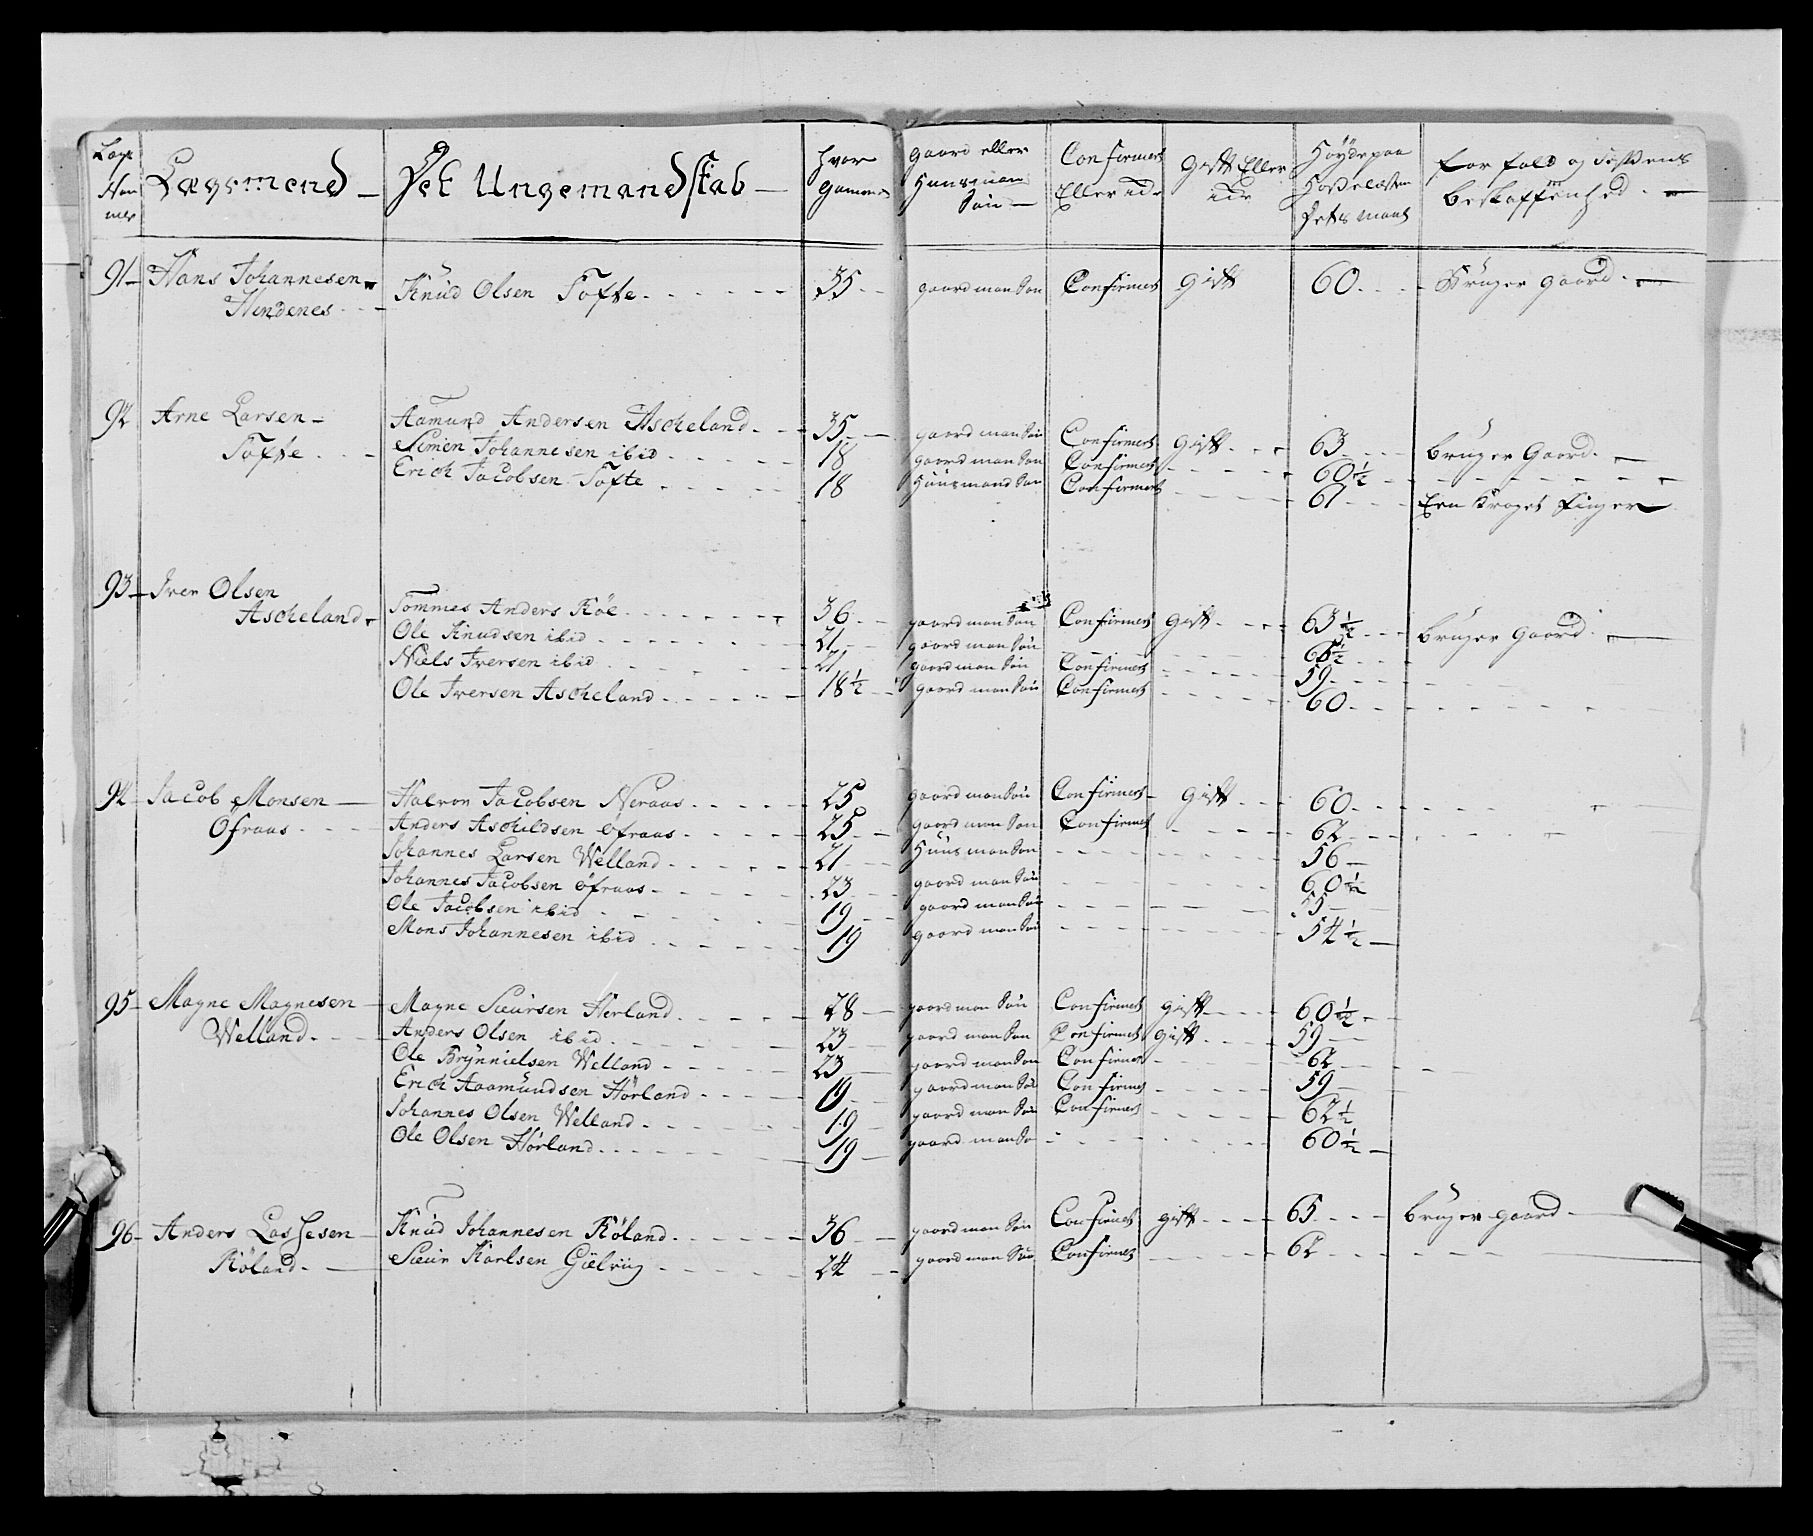 Lægs Nummer | Lægsmend | Det Ungemandskab | hvor gammel | gaard eller Huusmans Søn | Confirmert Eller Ei | Gift Eller Ei | Høyde paa Hoselæsten Detz maal | forfald og Lessens beskaffenhed
91 Hans Johannesen | Knud Olsen Tofte | 35 | gaardman Søn | Confirmert | gift | 60 | Bruger gaard
Hindenes
92 Arne Larsen | Aamund Andersen Ascheland | 35 | gaardman Søn | Confirmert | gift | 63 | bruger Gaard
Tofte | Simen Johannesen ibid | 18 | gaardman Søn | Confirmert | 60½
Erich Jacobsen Tofte | 18 | Huusmand Søn | Confirmert | 61 | Een Kroget Finger
93 Iver Olsen | Tommes Anders Røe | 36 | gaardman Søn | Confirmert | gift | 63½ | bruger Gaard
Ascheland | Ole Knudsen ibid | 21 | gaardman Søn
Niels Iversen ibid | 21 | gaardman Søn | Confirmert | 59
Ole Iversen Ascheland | 18½ | gaardman Søn | Confirmert | 60
94 Jacob Monsen | Halvor Jacobsen Neraas | 25 | gaardman Søn | Confirmert | gift | 60
Øfraas | Anders Aschildsen Øfraas | 25 | gaardman Søn | Confirmert | 62
Johannes Larsen Welland | 21 | Huusman Søn | 56
Johannes Jacobsen Øfraas | 23 | gaardman Søn | 60½
Ole Jacobsen ibid | 19 | gaardman Søn | 55
Mons Johannesen ibid | 19 | gaardman Søn | 54½
95 Magne Magnesen | Magne Siursen Herland | 28 | gaardman Søn | Confirmert | gift | 60½
Welland | Anders Olsen ibid | 23 | gaardman Søn | Confirmert | gift | 59
Ole Brynnielsen Welland | 23 | gaardman Søn | Confirmert | 62
Erich Aaamundsen Hørland | 19 | gaardman Søn | Confirmet | 59
Johannes Olsen Welland | 19 | gaardman Søn | Confirmert | 62½
Ole Olsen Hørland | 19 | gaardman Sø | 60½
96 Anders Lassesen | Knud Johannesen Røland | 36 | gaardman Søn | Confirmet | gift | 65 | bruger gaard
Røland | Siur Karlsen Gielviig | 24 | gaardman Søn | Confirmet | 62